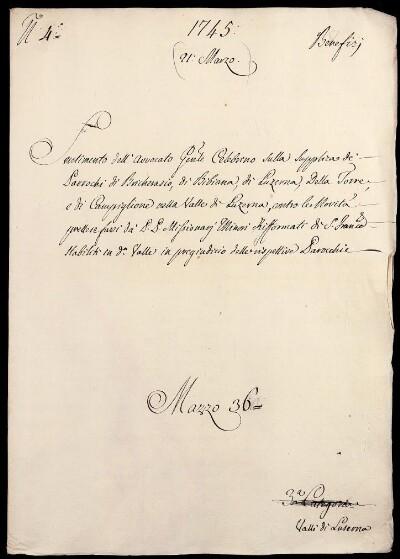 N. 4.°
1745.
Benefizj
21. Marzo.
Sentimento dell' Avvocato Gen̄le Celebrino sulla supplica de'
Parrochi di Bricherasio, di Bibiana, di Luzerna, Della Torre,
e di Campiglione nella Valle di Luzerna, contro le Novità
pretese farsi da' P. P. Missionarj Minori Riformati di S.t Franc.co
stabiliti in d.a Valle in pregiudicio delle rispettive Parocchie
Mazzo 36=
3.a Categoria
Valli di Luserna